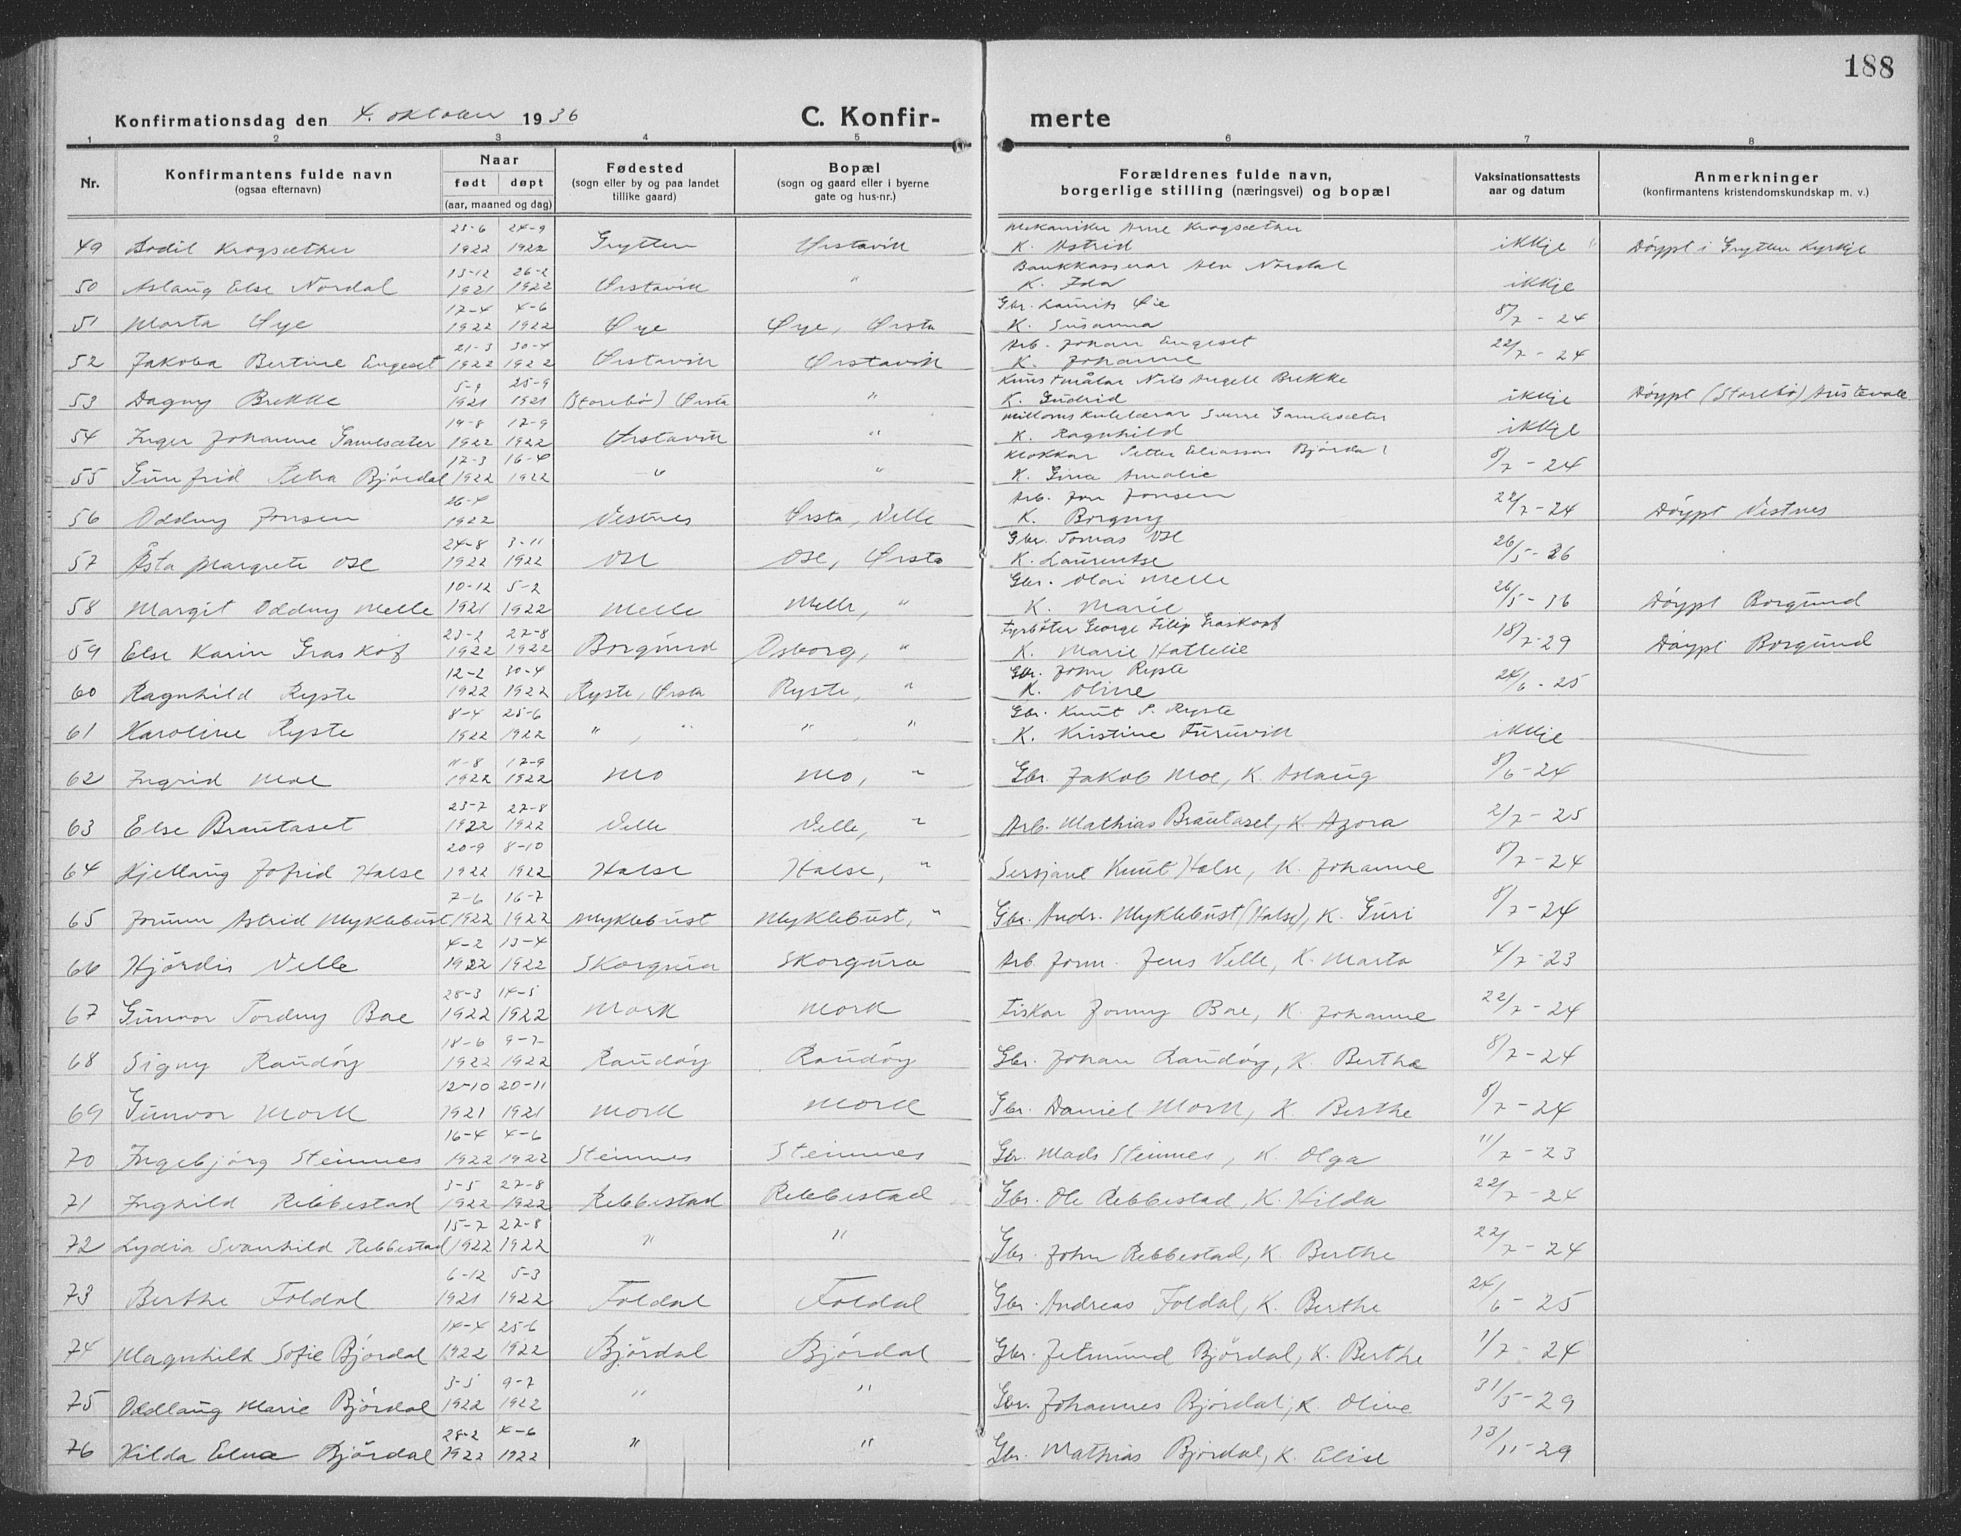 188
Konfirmationsdag den 4. oktober 1936 C. Konfirmerte
1 2 3 4 5 6 7 8
Nr. | Konfirmantens fulde navn (ogsaa efternavn) | Naar født døpt (aar, maaned og dag) | Fødested (sogn eller by og paa landet tillike gaard) | Bopæl (sogn og gaard eller i byerne gate og hus-nr.) | Forældrenes fulde navn, borgerlige stilling (næringsvei) og bopæl | Vaksinationsattests aar og datum | Anmerkninger (konfirmantens kristendomskundskap m. v.)
49 Bodil Krogsæther 25-6 1922 24-9 1922 Grytten Ørstavik Mekaniker Arne Krogsæther K. Astrid ikkje " Døypt i Grytten kyrkje
50 Aslaug Else Nordal 13-12 1921 26-2 1922 Ørstavik " Bankkasserar Nordal K. Ida ikkje
51 Marta Øye 17-4 1922 4-6 1922 Øye Øye, Ørsta Gbr. Laurits Øie K. Susanna 8/7-24
52 Jakoba Bertine Engeset 21-3 1922 30-4 1922 Ørstavik Ørstavik Arb. Johan Engeset K. Johanne 22/7-24
53 Dagny Brekke 5-9 1921 25-9 1921 (Storebø) Ørsta " Kunstmålar Nils Brekke K. Gudrid ikkje Døypt (Storebø) Austevoll
54 Inger Johanne Gamlesæter 19-8 1922 17-9 1922 Ørstavik " Sverre Gamlesæter K. Ragnhild ikkje
55 Gunfrid Petra Bjørdal 17-3 1922 16-4 1922 " " Klokkar Petter Eliassen Bjørdal K. Gina Amalie 8/7-24
56 Oddny Jonsen 26-4 1922 Vestnes Ørsta, Velle Arb. Jon Jonsen K. Borgny 22/7-24 Døypt Vestnes
57 Åsta Margrete Ose 24-8 1922 3-11 1922 Ose Ose, Ørsta Gbr. Tomas Ose K. Laurentse 26/5-36
58 Margit Oddny Melle 10-12 1921 5-2 1922 Melle Melle, " Gbr. Olai Melle K. Marie 26/5-36 Døypt Borgund
59 Else Karin Graskof 23-2 1922 27-8 1922 Borgund Osborg, " Fyrbøter George Filip Graskopf K. Marie Hatlelie 18/7-29 Døypt Borgund
60 Ragnhild Ryste 12-2 1922 30-4 1922 Ryste, Ørsta Ryste, " Gbr. John Ryste K. Oline 24/6-25
61 Karoline Ryste 8-4 1922 25-6 1922 " , " " , " Gbr. Knut P. Ryste K. Kristine Furuvik ikkje
62 Ingrid Moe 11-8 1922 17-9 1922 Mo Mo, " Gbr. Jakob Moe, K. Aslaug 8/6-24
63 Else Brautaset 23-7 1922 27-8 1922 Velle Velle, " Arb. Mathias Brautaset, K. Agora 2/7-25
64 Kjellaug Jofrid Halse 20-9 1922 8-10 1922 Halse Halse, " Sersjant Knut Halse, K. Johanne 8/7-24
65 Jorunn Astrid Myklebust 7-6 1922 16-7 1922 Myklebust Myklebust, " Gbr. Andr. Myklebust (Halse), K. Guri 8/7-24
66 Hjørdis Velle 4-2 1922 13-4 1922 Skorgura Skorgura Arb. form. Jens Velle, K. Marta 4/7-23
67 Gunvor Tordny Bae 28-3 1922 14-5 1922 Mork Mork Fiskar Jonny Bae, K. Johanne 22/7-24
68 Signy Raudøy 18-6 1922 9-7 1922 Raudøy Raudøy Gbr. Johan Raudøy, K. Berthe 8/7-24
69 Gunvor Mork 12-10 1921 20-11 1921 Mork Mork Gbr. Daniel Mork, K. Berthe 8/7-24
70 Ingebjørg Steinnes 16-4 1922 4-6 1922 Steinnes Steinnes Gbr. Mads Steinnes, K. Olga 11/7-23
71 Inghild Rebbestad 3-5 1922 27-8 1922 Rebbestad Rebbestad Gbr. Ole Rebbestad, K. Hilda 22/7-24
72 Lydia Svanhild Rebbestad 15-7 1922 27-8 1922 " " Gbr. John Rebbestad, K. Berthe 22/7-24
73 Berthe Foldal 6-12 1921 5-3 1922 Foldal Foldal Gbr. Andreas Foldal, K. Berthe 24/6-25
74 Magnhild Sofie Bjørdal 14-4 1922 25-6 1922 Bjørdal Bjørdal Gbr. Jetmund Bjørdal, K. Berthe 1/7-24
75 Oddlaug Marie Bjørdal 3-5 1922 9-7 1922 " " Gbr. Johannes Bjørdal, K. Oline 31/5-29
76 Hilda Elna Bjørdal 28-2 1922 4-6 1922 " " Gbr. Mathias Bjørdal, K. Elise 13/11-29